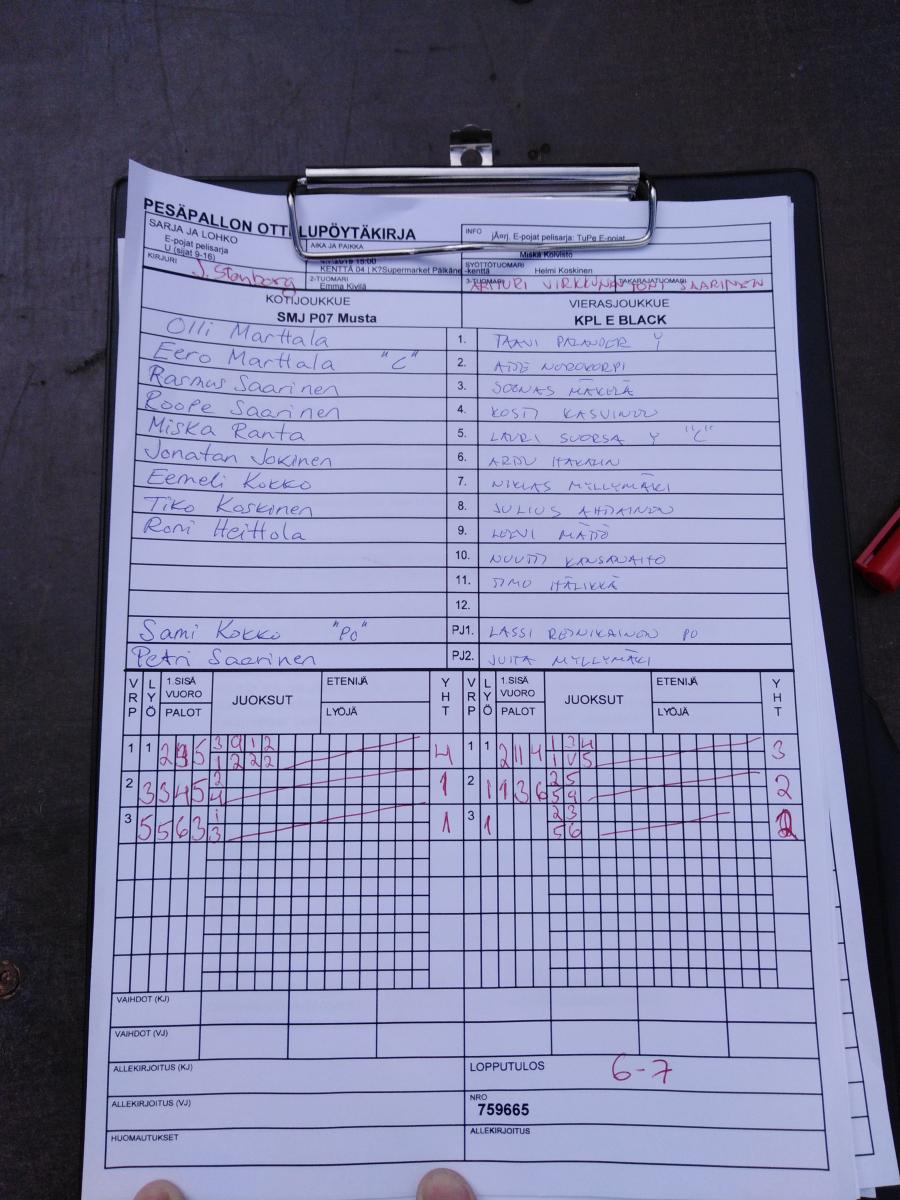 PESÄPALLON OTTELUPÖYTÄKIRJA
SARJA JA LOHKO
E-pojat pelisarja
U (sijat 9-16)
AIKA JA PAIKKA
2019 15:00
KENTTÄ 04 | K?Supermarket Pälkäne -kenttä
INFO
jÄ¤rj. E-pojat pelisarja: TuPe E-pojat
Miska Koivisto
SYÖTTÖTUOMARI
Helmi Koskinen
KIRJURI
J. Stenborg
2-TUOMARI
Emma Kivilä
3-TUOMARI
TAKARAJATUOMARI
ARTTURI VIRKKUNA TONI SAARINEN
KOTIJOUKKUE
SMJ P07 Musta
VIERASJOUKKUE
KPL E BLACK
Olli Marttala 1. TAAVI PALANDER Y
Eero Marttala "C" 2.
Rasmus Saarinen 3. JOONAS MÄKELÄ
Roope Saarinen 4. KOSTI KASVINEN
Miska Ranta 5. LAURI SUORSA Y "C"
Jonatan Jokinen 6.
Eemeli Kokko 7. NIKLAS MYLLYMÄKI
Tiko Koskinen 8. JULIUS AHDAINEN
Roni Heittola 9. LEEVI MÄTTÖ
10. NUUTTI KANSANAHO
11. TIMO HÄLIKKÄ
12.
Sami Kokko "PO" PJ1. LASSI REINIKAINEN PO
Petri Saarinen PJ2. JUITA MYLLYMÄKI
VRP LYÖ 1.SISÄ VUORO PALOT JUOKSUT ETENIJÄ LYÖJÄ YHT VRP LYÖ 1.SISÄ VUORO PALOT JUOKSUT ETENIJÄ LYÖJÄ YHT
1 1 3 9 1 2 4 1 1 2 11 4 1 3 4 3
1 2 2 2 1 V 5
2 3 3 4 5 2 1 2 1 1 3 6 2 5 2
4 5 9
3 5 5 6 3 1 1 3 1 2 3 2
3 5 6
VAIHDOT (KJ)
VAIHDOT (VJ)
ALLEKIRJOITUS (KJ)
LOPPUTULOS 6-7
ALLEKIRJOITUS (VJ)
NRO
759665
HUOMAUTUKSET
ALLEKIRJOITUS